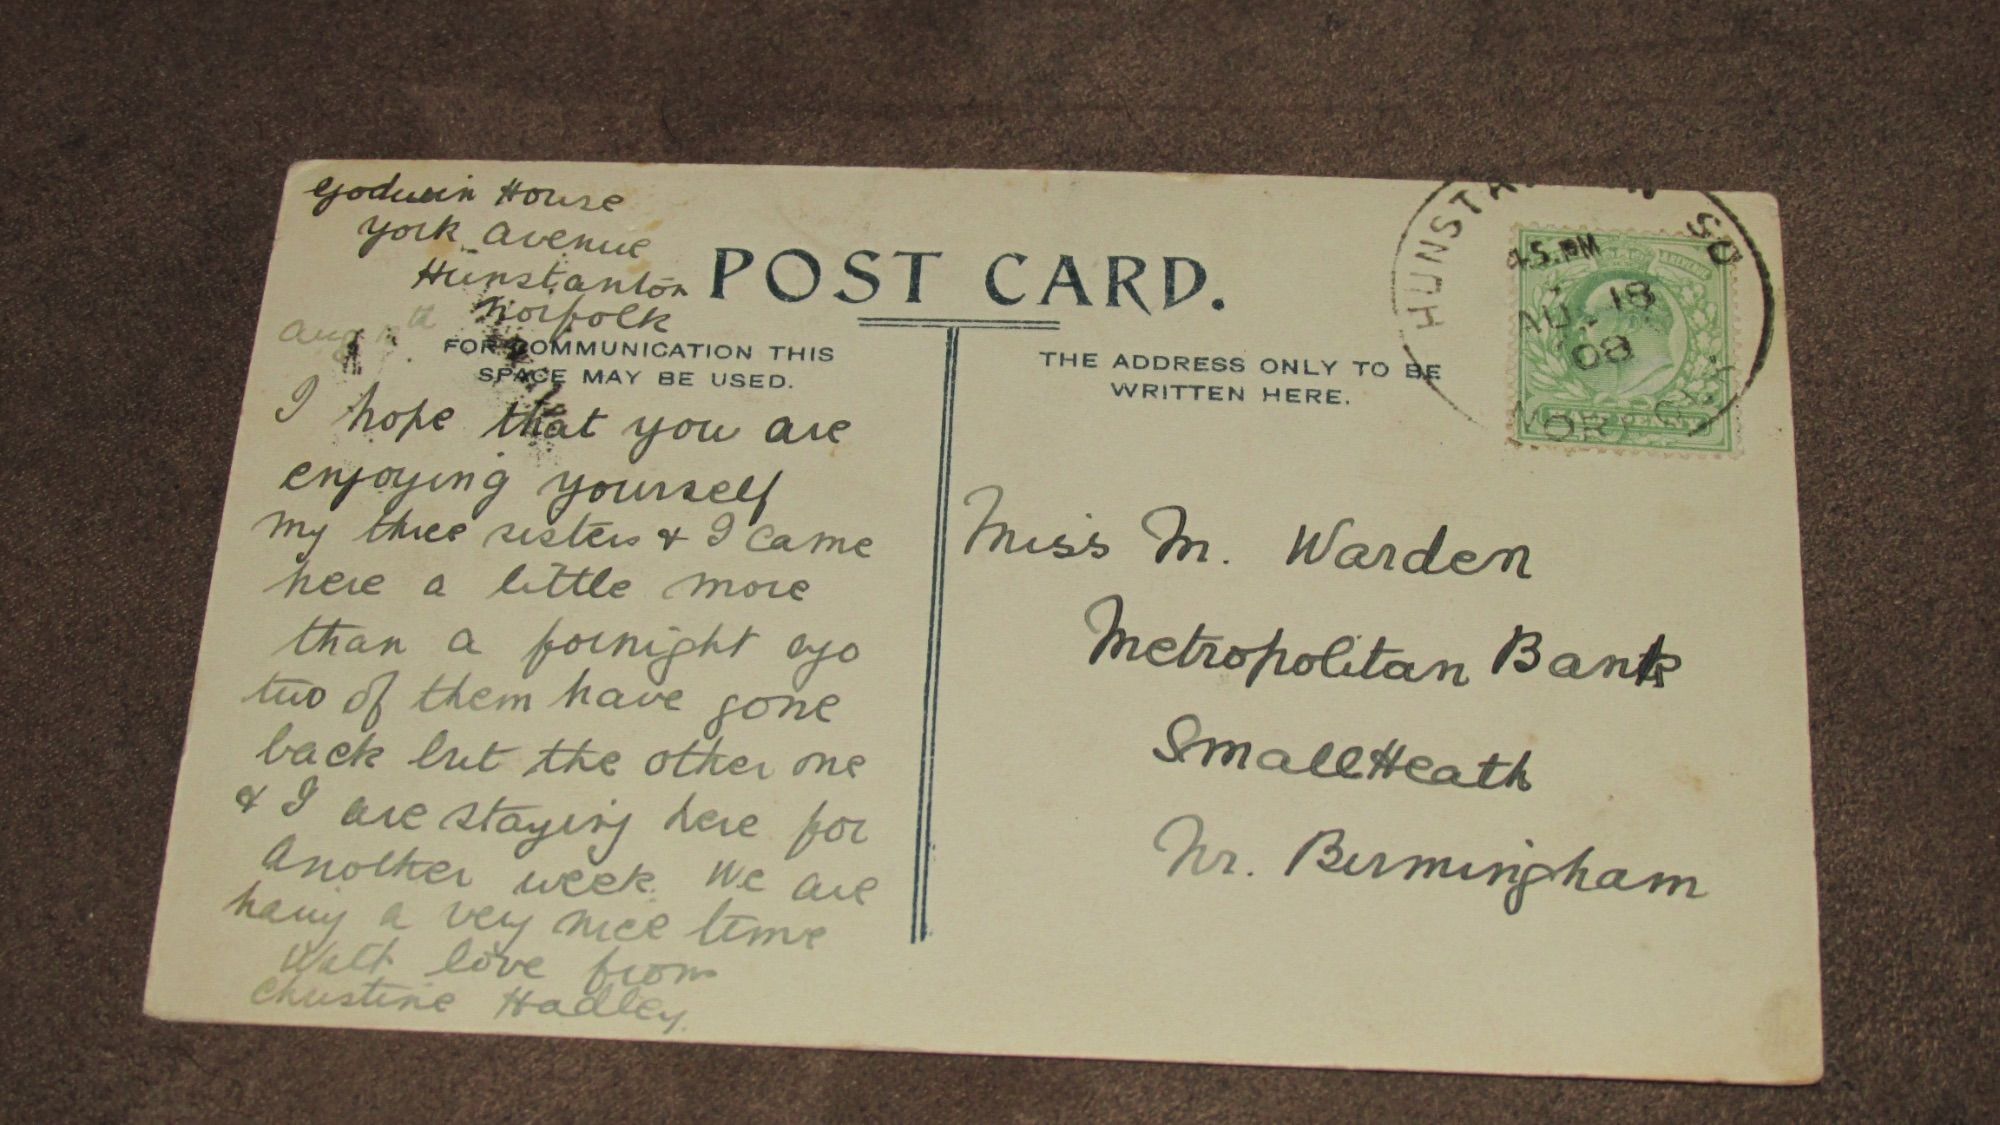 Godwin House
York Avenue
Hunstanton
Norfolk
Aug th
POST CARD.
FOR COMMUNICATION THIS
SPACE MAY BE USED.
I hope that you are
enjoying yourself
My three sisters & I came
here a little more
than a fornight ago
two of them have gone
back but the other one
& I are staying here for
another week. We are
having a very nice time
With love from
Christine Hadley.
THE ADDRESS ONLY TO BE
WRITTEN HERE.
Miss M. Warden
Metropolitan Bank
Small Heath
Nr. Birmingham
HUNSTANTON S.O
45.PM
AU 18
08
NORFOLK